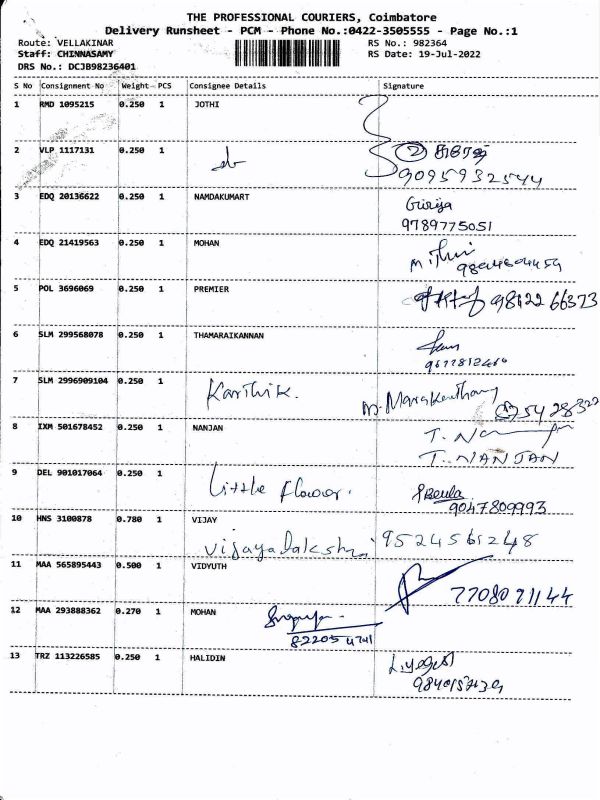 THE PROFESSIONAL COURIERS, Coimbatore
Delivery Runsheet - PCM - Phone No.:0422-3505555 - Page No.:1
Route: VELLAKINAR
RS No.: 982364
Staff: CHINNASAMY
RS Date: 19-Jul-2022
DRS No.: DCJB98236401
S No Consignment No Weight PCS Consignee Details Signature
1 RMD 1095215 0.250 1 JOTHI
2 VLP 1117131 0.250 1
9095932544
3 EDQ 20136622 0.250 1 NAMDAKUMART Girija
9789775051
4 EDQ 21419563 0.250 1 MOHAN
5 POL 3696069 0.250 1 PREMIER
6 SLM 299568078 0.250 1 THAMARAIKANNAN
7 SLM 2996909104 0.250 1 Karthik.
8 IXM 501678452 0.250 1 NANJAN
T. NANJAN
9 DEL 901017064 0.250 1 Little flower. Beula
9047809993
10 HNS 3100878 0.780 1 VIJAY
9524561248
11 MAA 565895443 0.500 1 VIDYUTH
7708091144
12 MAA 293888362 0.270 1 MOHAN
13 TRZ 113226585 0.250 1 HALIDIN